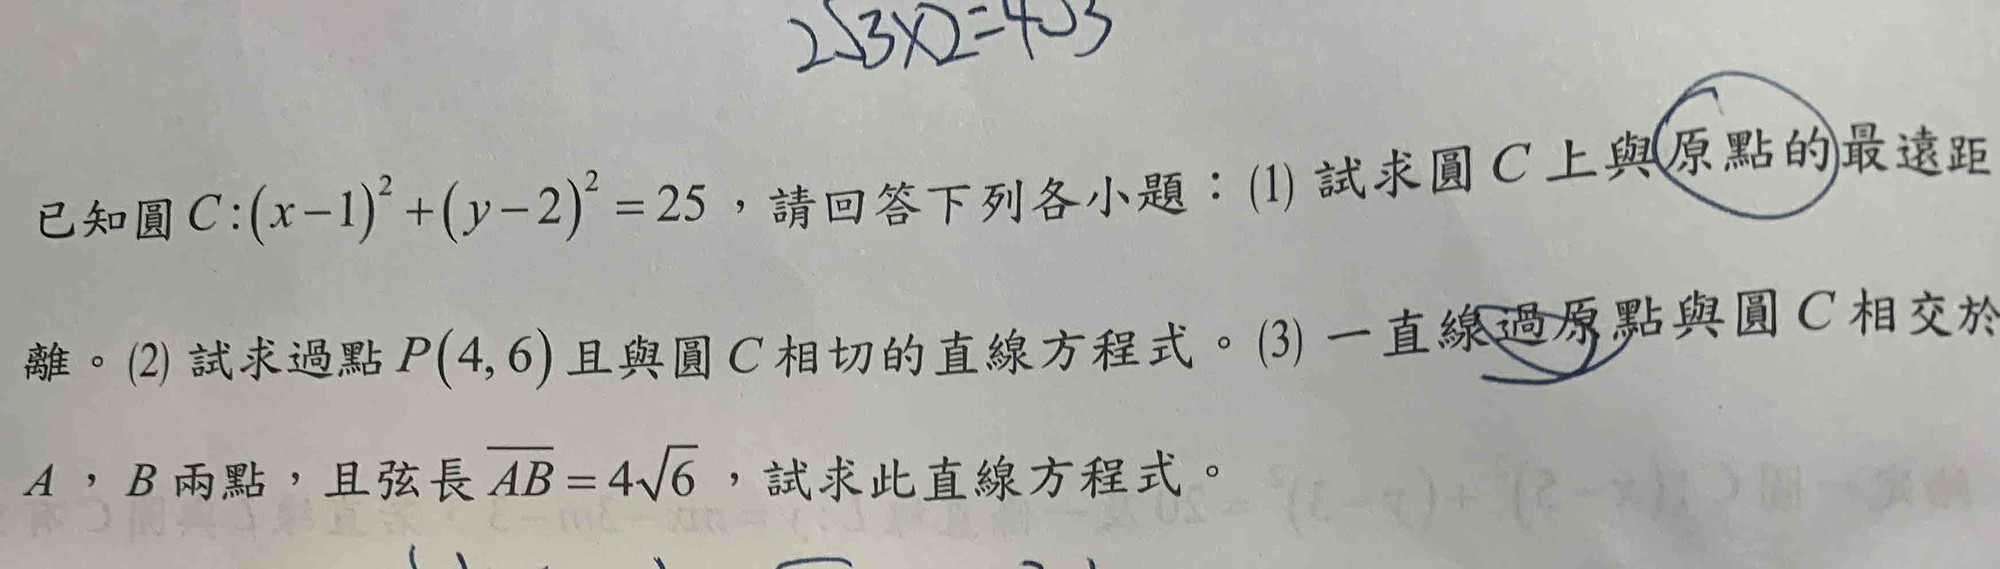 2√3×2=4√3
已知圓C:(x−1)²+(y−2)²=25，請回答下列各小題：(1) 試求圓C上與原點的最遠距
離。(2) 試求過點P(4,6)且與圓C相切的直線方程式。(3) 一直線過原點與圓C相交於
A，B兩點，且弦長AB=4√6，試求此直線方程式。